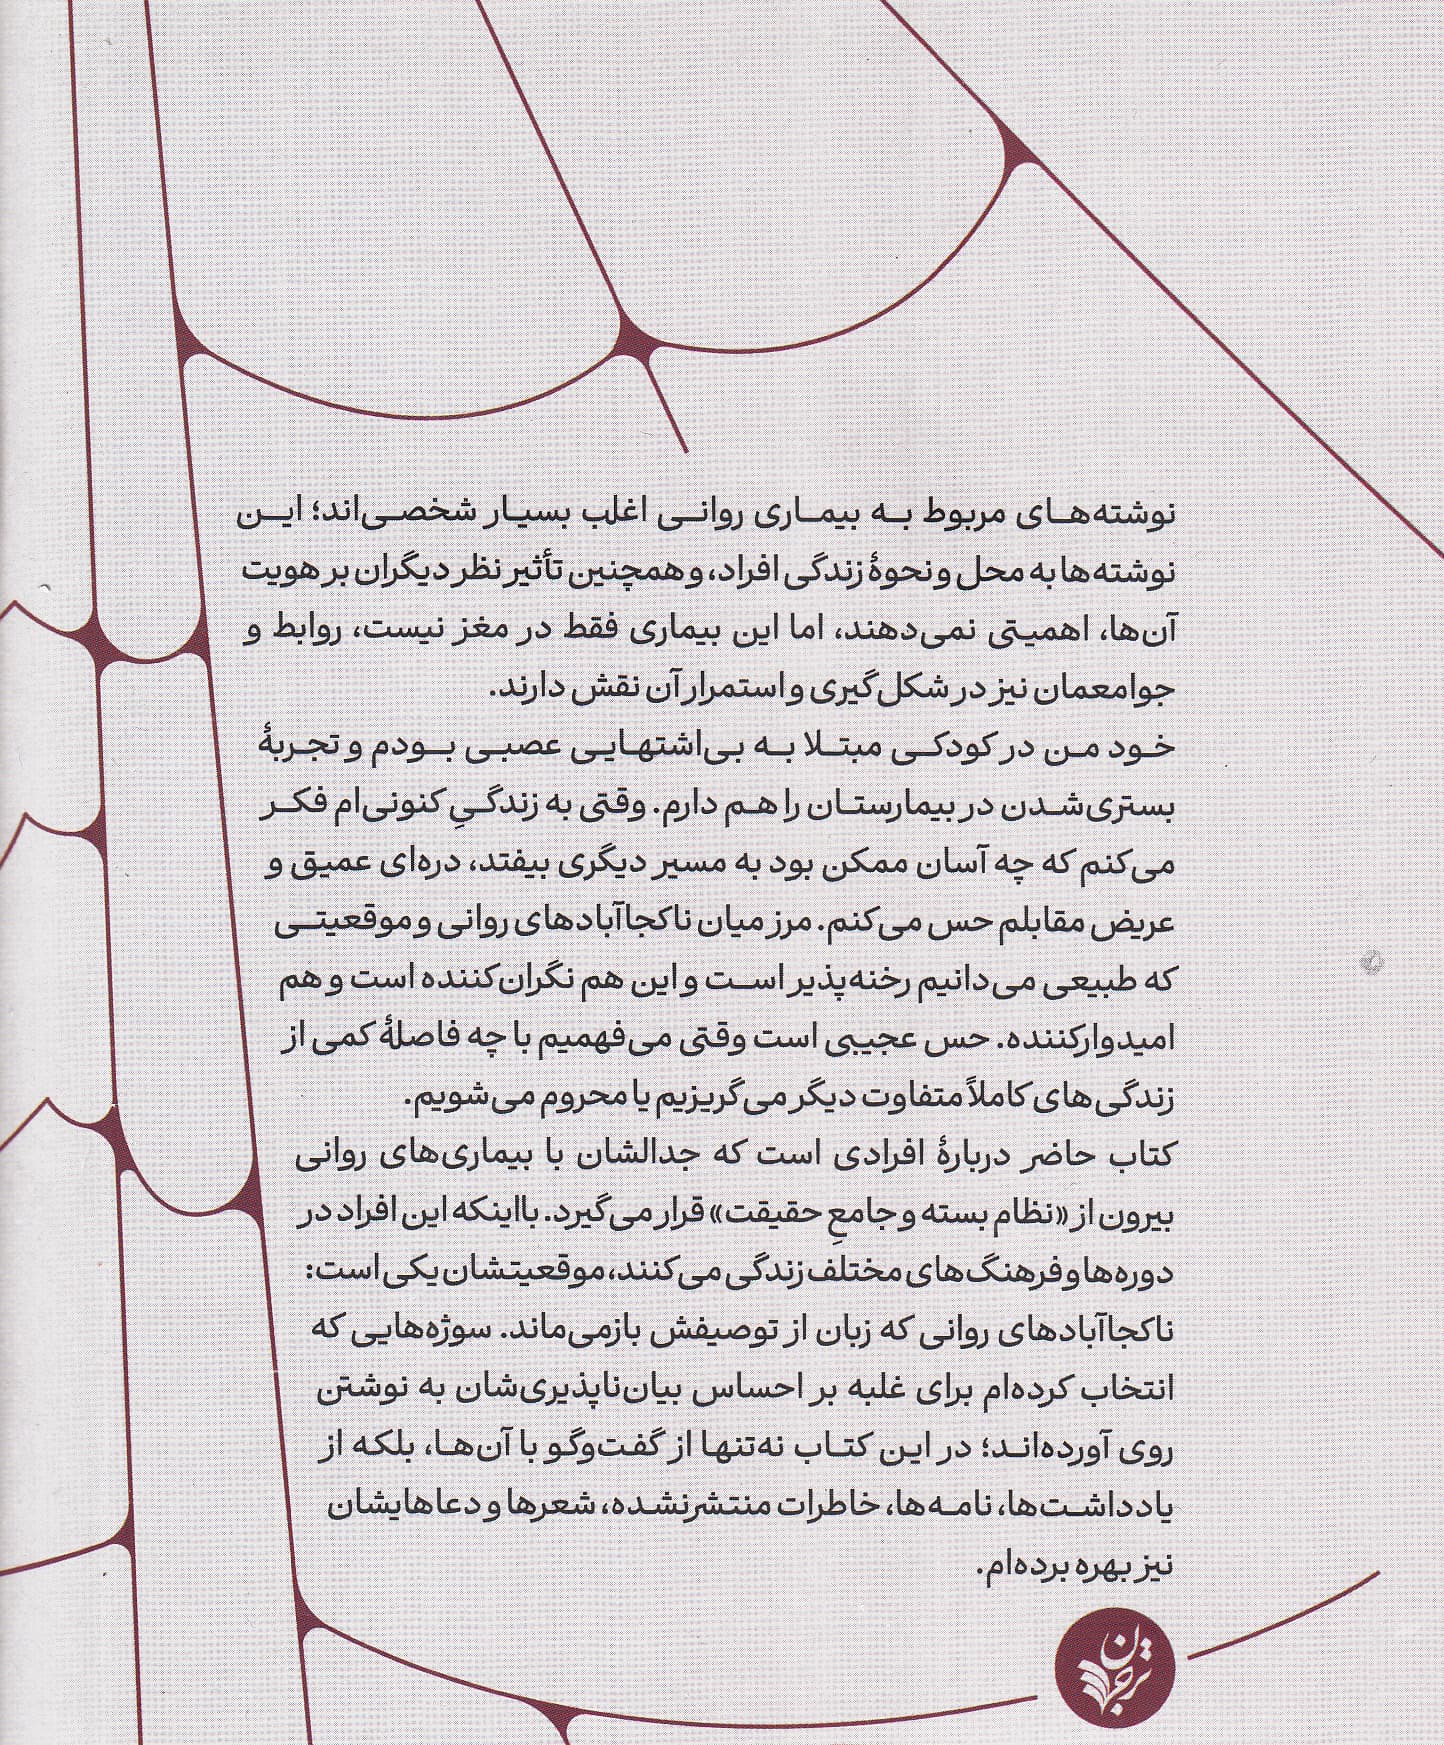 نوشته‌های مربوط به بیماری روانی اغلب بسیار شخصی‌اند؛ این
نوشته‌ها به محل و نحوهٔ زندگی افراد، و همچنین تأثیر نظر دیگران بر هویت
آن‌ها، اهمیتی نمی‌دهند، اما این بیماری فقط در مغز نیست، روابط و
جوامعمان نیز در شکل‌گیری و استمرار آن نقش دارند.
خود من در کودکی مبتلا به بی‌اشتهایی عصبی بودم و تجربهٔ
بستری‌شدن در بیمارستان را هم دارم. وقتی به زندگیِ کنونی‌ام فکر
می‌کنم که چه آسان ممکن بود به مسیر دیگری بیفتد، دره‌ای عمیق و
عریض مقابلم حس می‌کنم. مرز میان ناکجاآبادهای روانی و موقعیتی
که طبیعی می‌دانیم رخنه‌پذیر است و این هم نگران‌کننده است و هم
امیدوارکننده. حس عجیبی است وقتی می‌فهمیم با چه فاصلهٔ کمی از
زندگی‌های کاملاً متفاوت دیگر می‌گریزیم یا محروم می‌شویم.
کتاب حاضر دربارهٔ افرادی است که جدالشان با بیماری‌های روانی
بیرون از «نظام بسته و جامعِ حقیقت» قرار می‌گیرد. بااینکه این افراد در
دوره‌ها و فرهنگ‌های مختلف زندگی می‌کنند، موقعیتشان یکی است:
ناکجاآبادهای روانی که زبان از توصیفش بازمی‌ماند. سوژه‌هایی که
انتخاب کرده‌ام برای غلبه بر احساس بیان‌ناپذیری‌شان به نوشتن
روی آورده‌اند؛ در این کتاب نه‌تنها از گفت‌وگو با آن‌ها، بلکه از
یادداشت‌ها، نامه‌ها، خاطرات منتشرنشده، شعرها و دعاهایشان
نیز بهره برده‌ام.
ترجمان